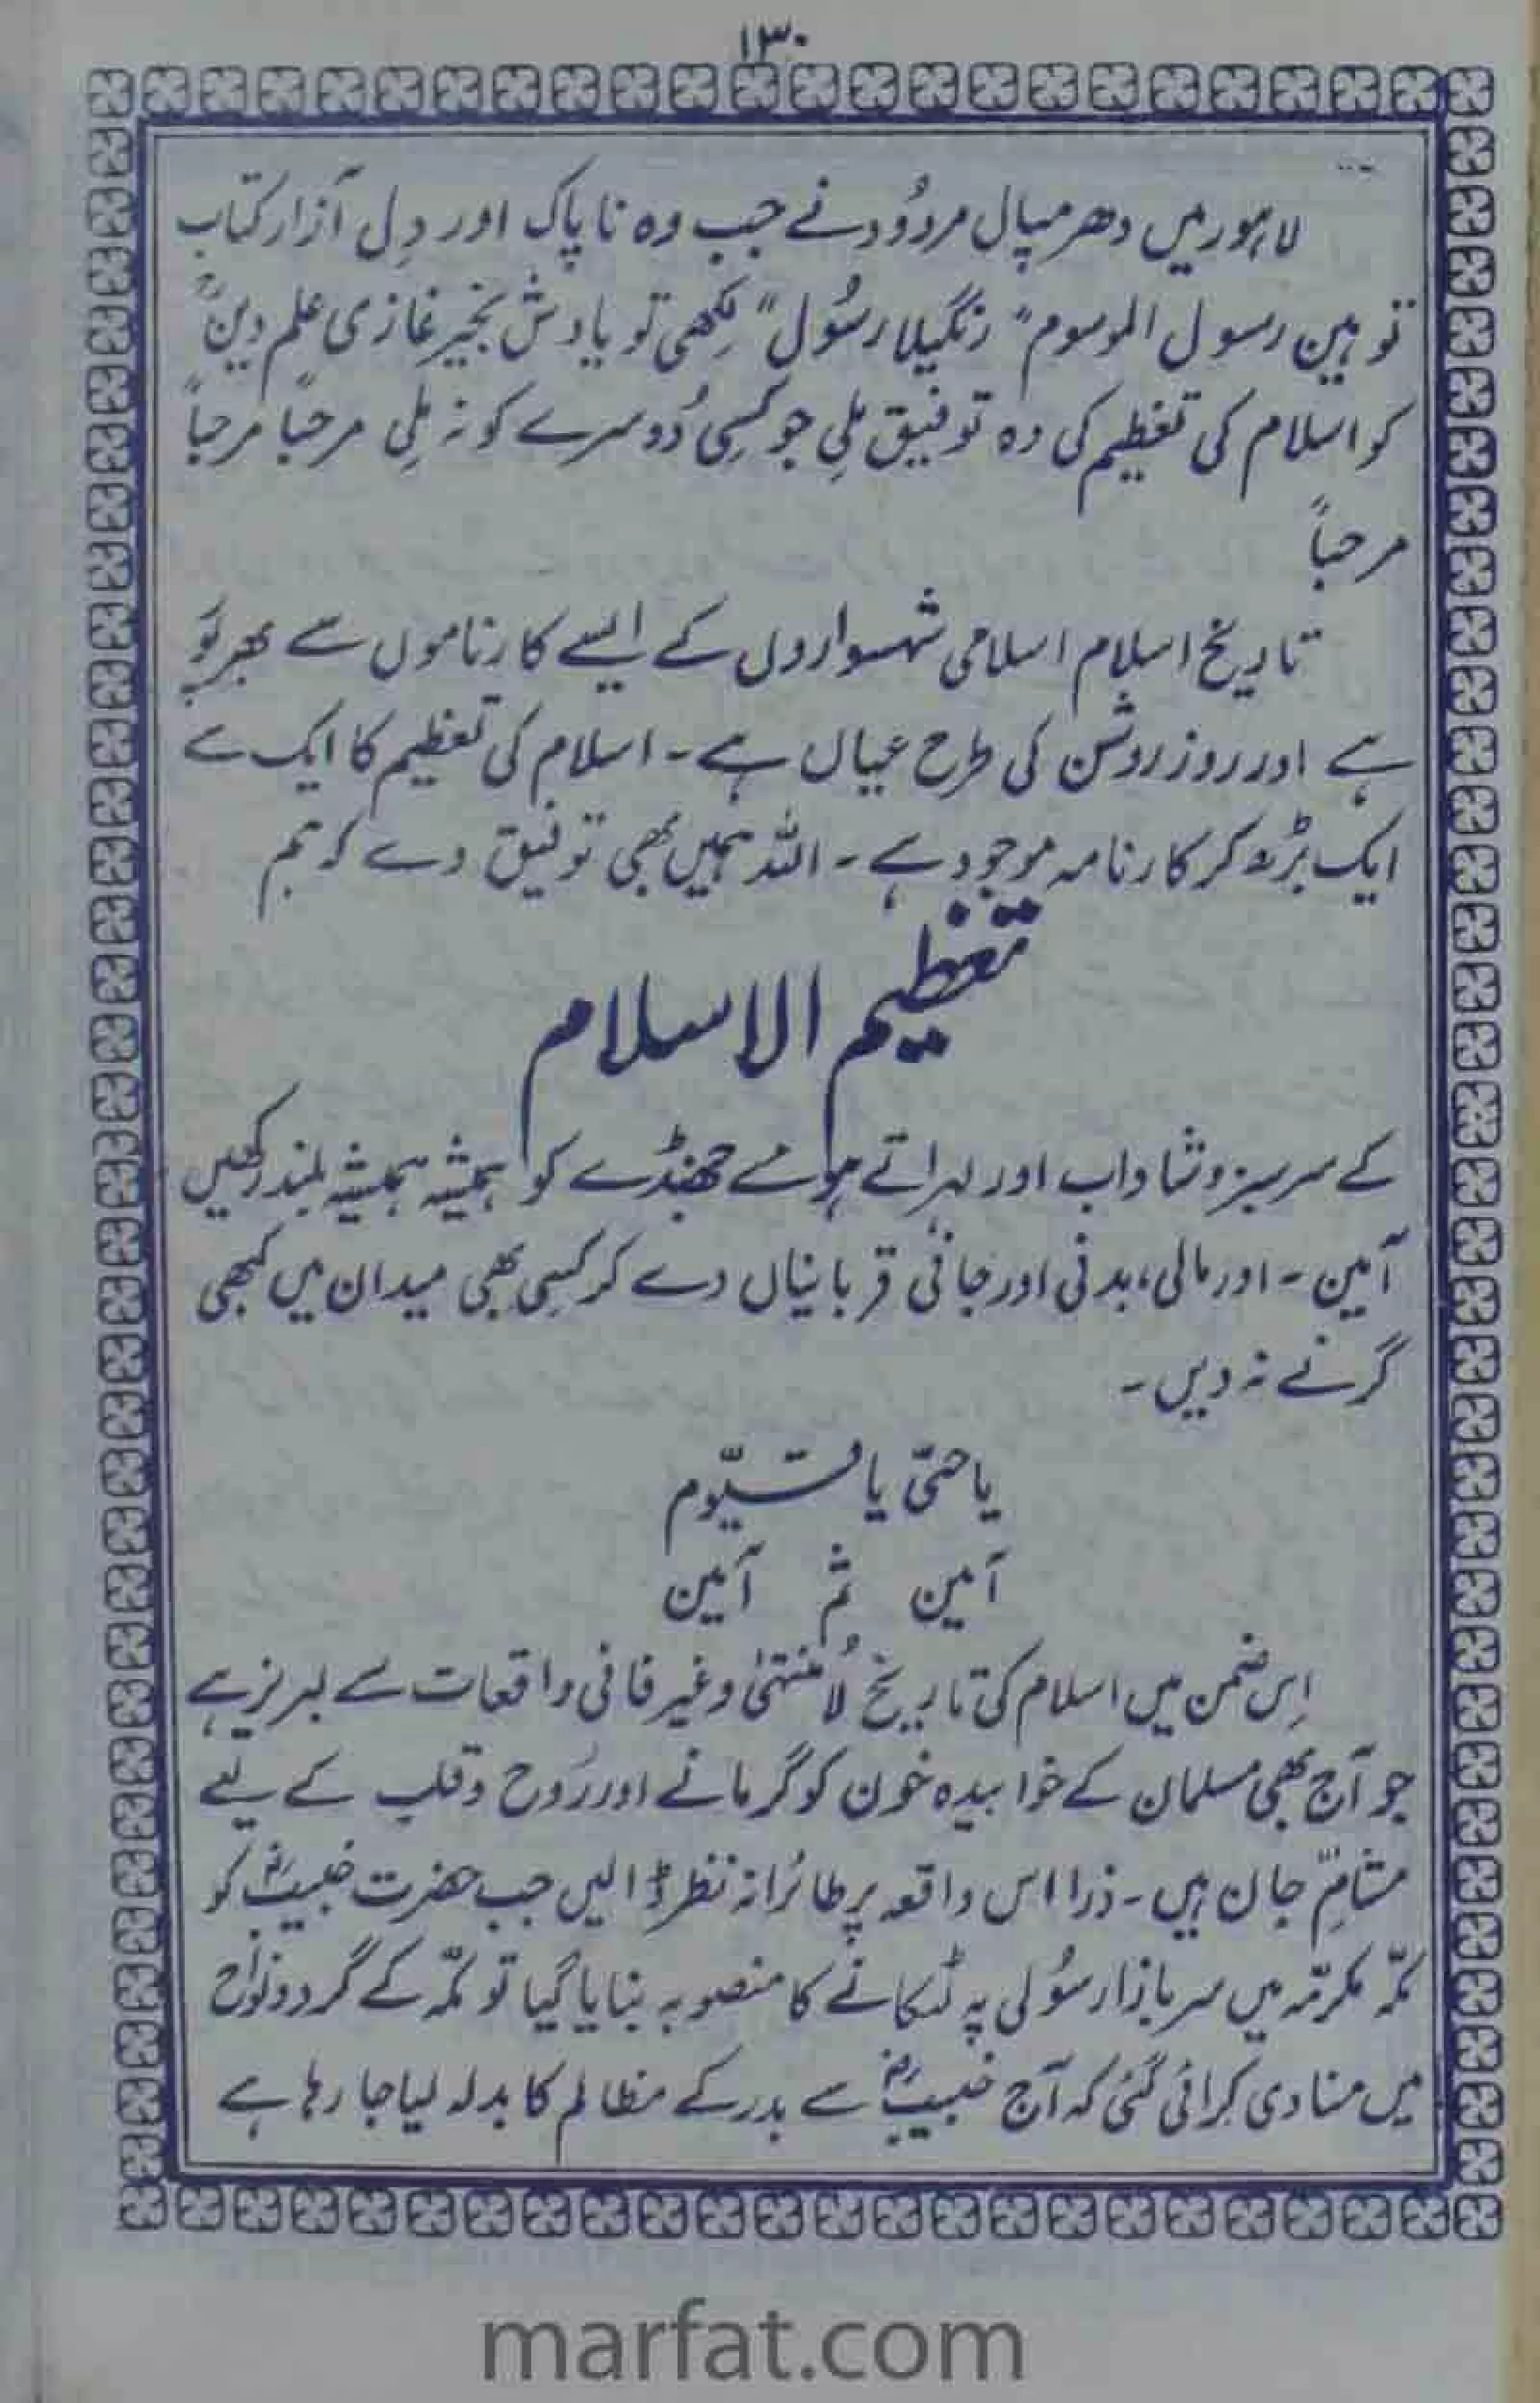 ۱۳۰
لاہور میں دھرمپال مردُود نے جب وہ ناپاک اور دِل آزار کتاب
توہین رسول الموسوم "رنگیلا رسُول" لِکھی تو یادش بخیر غازی علم دینؒ
کو اسلام کی تعظیم کی وہ توفیق ملِی جو کسِی دُوسرے کو نہ مِلی مرحباً مرحباً
مرحباً
تاریخ اسلام اسلامی شہسواروں کے ایسے کارناموں سے بھرپُو
ہے اور روز روشن کی طرح عیاں ہے۔ اسلام کی تعظیم کا ایک سے
ایک بڑھ کر کارنامہ موجود ہے۔ اللہ ہمیں بھی توفیق دے کہ ہم
تعظیم الاسلام
کے سرسبز و شاداب اور لہراتے ہوئے جھنڈے کو ہمیشہ ہمیشہ بلند رکھیں
آمین۔ اور مالی، بدنی اور جانی قربانیاں دے کر کسِی بھی میدان میں کبھی
گرنے نہ دیں۔
یا حیّ یا قیّوم
آمین ثم آمین
اِس ضمن میں اسلام کی تاریخ لَامنتہیٰ و غیر فانی واقعات سے لبریز ہے
جو آج بھی مسلمان کے خوابیدہ خون کو گرمانے اور رُوح و قلب کے لیے
مشامِّ جان ہیں۔ ذرا اس واقعہ پر طائرانہ نظر ڈالیں جب حضرت خبیبؓ کو
مکّہ مکرمّہ میں سرِ بازار سُولی پہ لٹکانے کا منصوبہ بنایا گیا تو مکّہ کے گرد و نواح
میں منادی کرائی گئی کہ آج خبیبؓ سے بدر کے مظالم کا بدلہ لیا جا رہا ہے
marfat.com